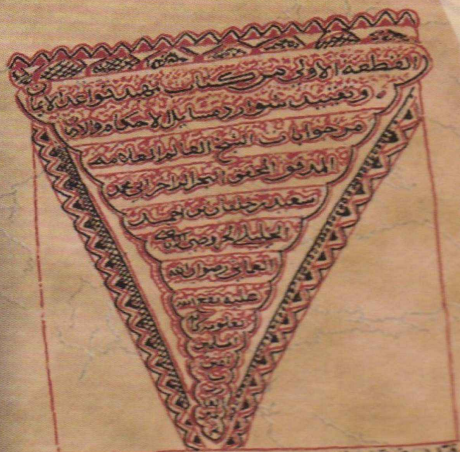 القطعة الاولى من كتاب تمهيد قواعد الايمان
وتقييد شوارد مسايل الاحكام والاديان
من جوابات الشيخ العالم العلامة
المدقق المحقق البحر الزاخر ابي محمد
سعيد بن خلفان بن احمد بن
الخليلي الخروصي
العماني رضوان الله
عليه نفع الله
بعلومه
امين